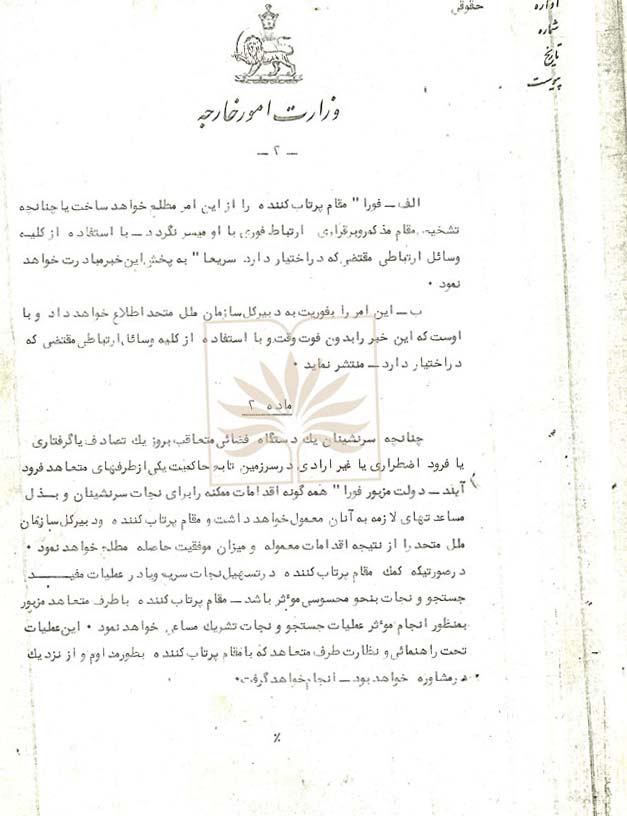 اداره حقوقی
شماره
تاریخ
پیوست
وزارت امور خارجه
ـ ۲ ـ
الف ـ فورا" مقام پرتاب کننده را از این امر مطلع خواهد ساخت یا چنانچه
تشخیص مقام مذکور و برقراری ارتباط فوری با او میسر نگردد ـ با استفاده از کلیه
وسائل ارتباطی مقتضی که در اختیار دارد. سریعا" به پخش این خبر مبادرت خواهد
نمود ۰
ب ـ این امر را بفوریت به دبیرکل سازمان ملل متحد اطلاع خواهد داد و با
اوست که این خبر را بدون فوت وقت و با استفاده از کلیه وسائل ارتباطی مقتضی که
در اختیار دارد ـ منتشر نماید ۰
ماده ۲
چنانچه سرنشینان یک دستگاه فضائی متعاقب بروز یک تصادف یا گرفتاری
یا فرود اضطراری یا غیر ارادی در سرزمین تابع حاکمیت یکی از طرفهای متعاهد فرود
آیند ـ دولت مزبور فورا" همه گونه اقدامات ممکنه را برای نجات سرنشینان و بذل
مساعدتهای لازمه به آنان معمول خواهد داشت و مقام پرتاب کننده و دبیرکل سازمان
ملل متحد را از نتیجه اقدامات معموله و میزان موفقیت حاصله مطلع خواهد نمود ۰
در صورتیکه کمک مقام پرتاب کننده در تسهیل نجات سریع و یا در عملیات مفید
جستجو و نجات بنحو محسوسی موثر باشد ـ مقام پرتاب کننده با طرف متعاهد مزبور
بمنظور انجام موثر عملیات جستجو و نجات تشریک مساعی خواهد نمود ۰ این عملیات
تحت راهنمائی و نظارت طرف متعاهد که با مقام پرتاب کننده بطور مداوم و از نزدیک
در مشاوره خواهد بود ـ انجام خواهد گرفت ۰
٪